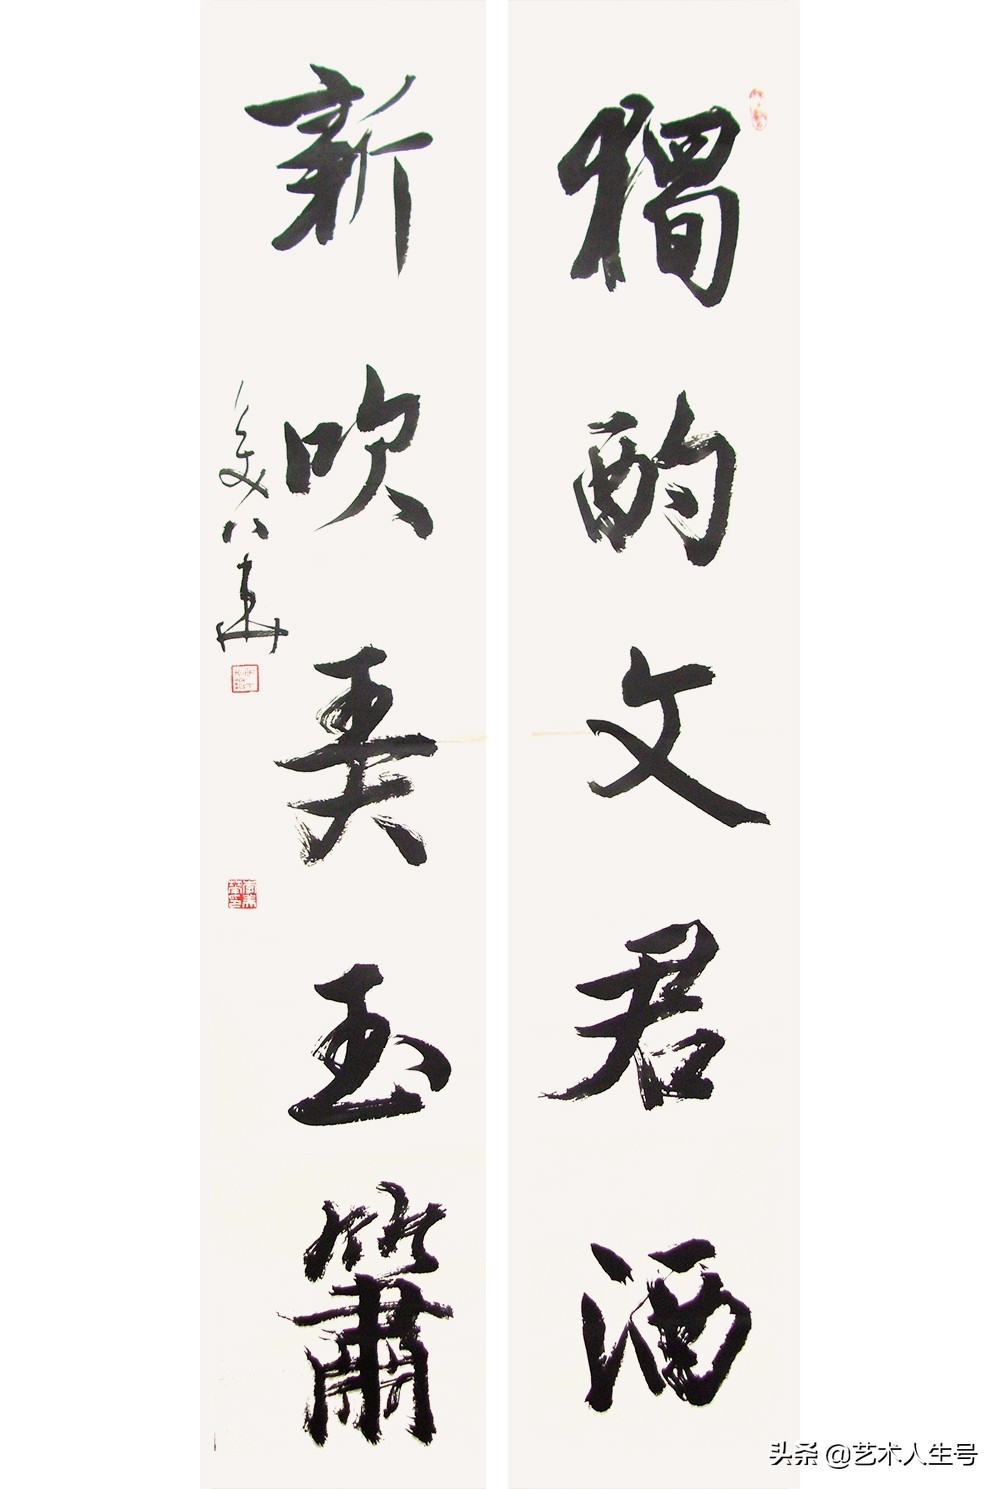 獨酌文君酒
新吹弄玉簫
头条 @艺术人生号